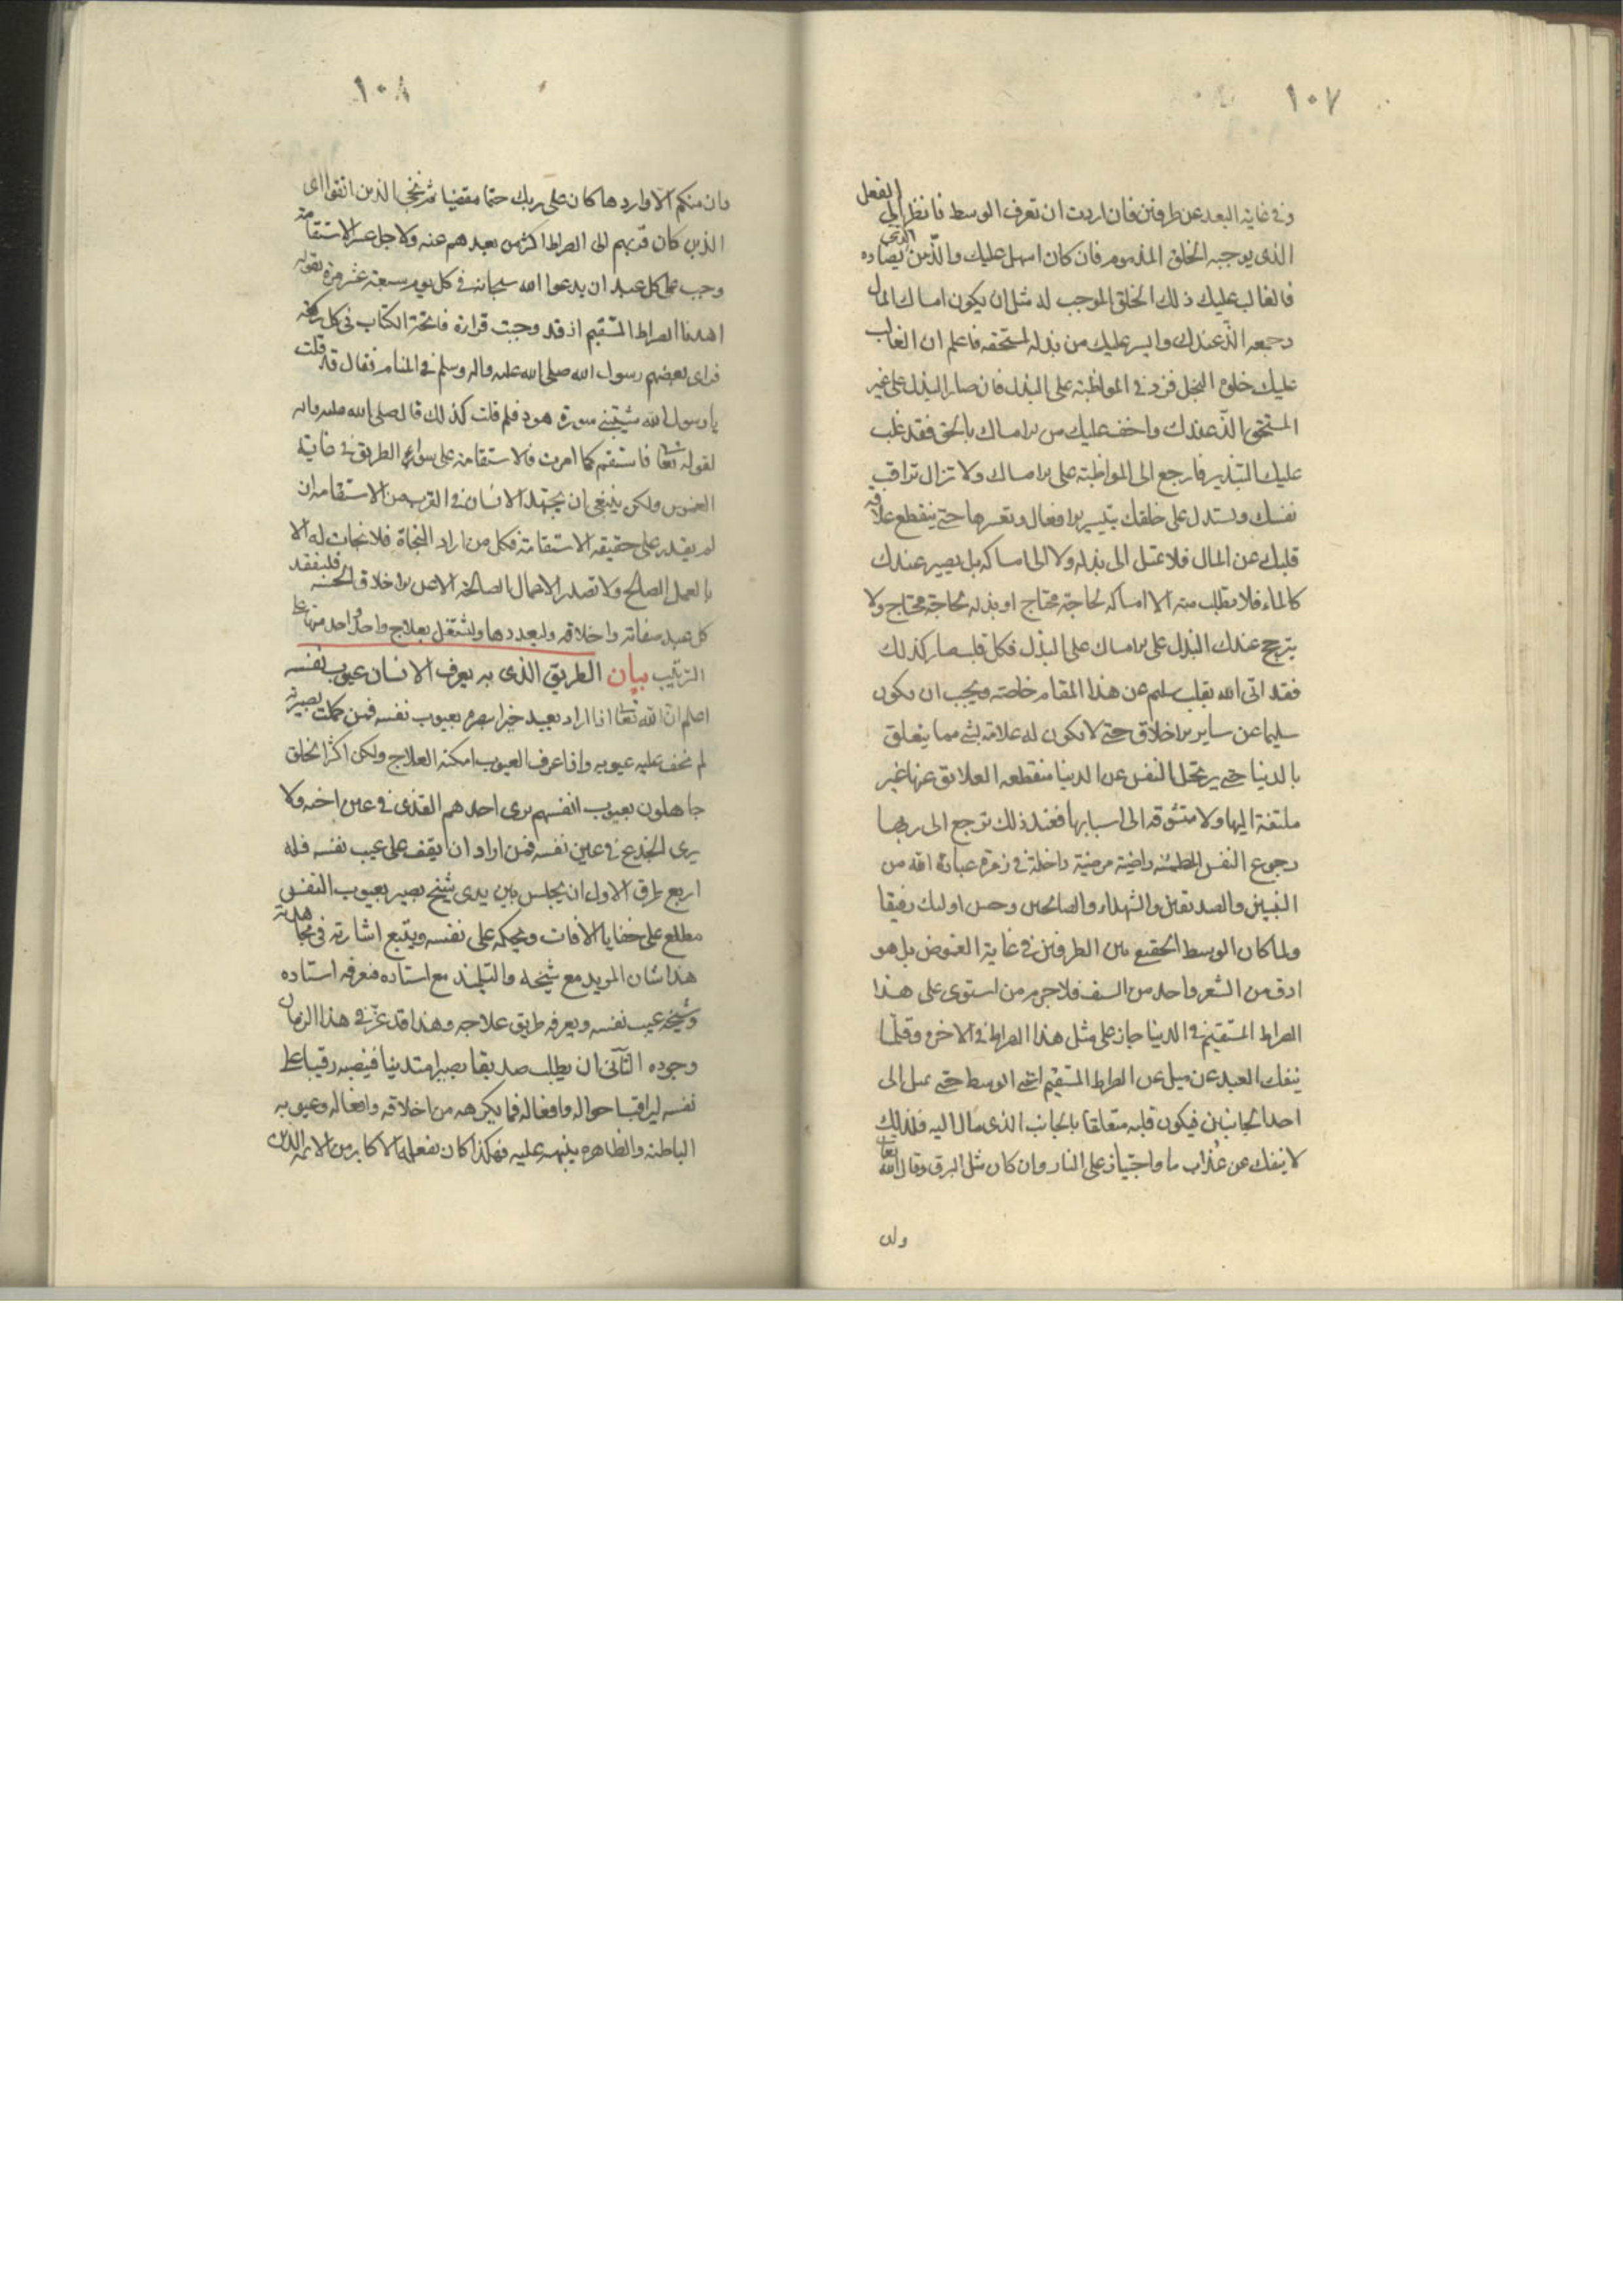 ١٠٧
وفي غاية البعد عن طرفين فان اردت ان تعرف الوسط فانظر الى الفعل
الذى يوجبه الخلق المذموم فان كان اسهل عليك والذ من الذى يضاده
فالغالب عليك ذلك الخلق الموجب له مثل ان يكون امساك المال
وجمعه الذ عندك وايسر عليك من بذله لمستحقه فاعلم ان الغالب
عليك خلق البخل فزد في المواظبة على البذل فان صار البذل على غير
المستحق الذ عندك واخف عليك من الامساك بالحق فقد غلب
عليك التبذير فارجع الى المواظبة على الامساك ولا تزال تراقب
نفسك وتستدل على خلقك بتيسير الافعال وتعسرها حتى ينقطع علاقة
قلبك عن المال فلا تميل الى بذله ولا الى امساكه بل يصير عندك
كالماء فلا يطلب منه الا امساكه لحاجة محتاج او بذله لحاجة محتاج ولا
يترجح عندك البذل على الامساك على البذل فكل قلب صار كذلك
فقد اتى الله بقلب سليم عن هذا المقام خاصة ويجب ان يكون
سليما عن ساير الاخلاق حتى لا يكون له علاقة بشي مما يتعلق
بالدنيا حتى يرتحل النفس عن الدنيا منقطعه العلايق عنها غير
ملتفتة اليها ولا متشوقه الى اسبابها فعند ذلك ترجع الى ربها
رجوع النفس المطمئنه راضية مرضية داخلة في زمرة عباد الله من
النبيين والصديقين والشهداء والصالحين وحسن اوليك رفيقا
ولما كان الوسط الحقيقي بين الطرفين في غاية الغموض بل هو
ادق من الشعر واحد من السيف فلا جرم من استوى على هذا
الصراط المستقيم في الدنيا جاز على مثل هذا الصراط في الاخرة وقلما
ينفك العبد عن ميل عن الصراط المستقيم اعني الوسط حتى يميل الى
احد الجانبين فيكون قلبه متعلقا بالجانب الذى مال اليه فلذلك
لا ينفك عن عذاب ما واجتياز على النار وان كان مثل البرق وقال الله تعالى
وان
١٠٨
وان منكم الا واردها كان على ربك حتما مقضيا ثم ننجى الذين اتقوا اى
الذين كان قربهم الى الصراط اكثر من بعدهم عنه ولاجل عسر الاستقامة
وجب على كل عبد ان يدعوا الله سبحانه في كل يوم سبعة عشر مرة بقوله
اهدنا الصراط المستقيم اذ قد وجبت قراءة فاتحة الكتاب في كل ركعة
فراى بعضهم رسول الله صلى الله عليه واله وسلم في المنام فقال قد قلت
يا رسول الله شيبتني سورة هود فلم قلت كذلك قال صلى الله عليه واله
لقوله تعالى فاستقم كما امرت فالاستقامة على سواء الطريق في غاية
الغموض ولكن ينبغى ان يجتهد الانسان في القرب من الاستقامة ان
لم يقدر على حقيقة الاستقامة فكل من اراد النجاة فلا نجات له الا
بالعمل الصالح ولا تصدر الاعمال الصالحة الا عن الاخلاق الحسنه فليتفقد
كل عبد صفاته واخلاقه وليعددها وليشتغل بعلاج واحد واحد منها على
الترتيب بيان الطريق الذى به يعرف الانسان عيوب نفسه
اعلم ان الله تعالى اذا اراد بعبد خيرا بصره بعيوب نفسه فمن كملت بصيرته
لم تخف عليه عيوبه واذا عرف العيوب امكنه العلاج ولكن اكثر الخلق
جاهلون بعيوب انفسهم يرى احدهم القذى في عين اخيه ولا
يرى الجذع في عين نفسه فمن اراد ان يقف على عيب نفسه فله
اربع طرق الاول ان يجلس بين يدى شيخ بصير بعيوب النفس
مطلع على خفايا الافات ويحكمه على نفسه ويتبع اشارته في مجاهدته
هذا شان المريد مع شيخه والتلميذ مع استاده فيعرفه استاده
وشيخه عيب نفسه ويعرفه طريق علاجه وهذا قد عز في هذا الزمان
وجوده الثاني ان يطلب صديقا بصيرا متدينا فينصبه رقيبا على
نفسه ليراقب احواله وافعاله فما يكرهه من اخلاقه وافعاله وعيوبه
الباطنة والظاهره ينبهه عليه فهكذا كان يفعله الاكابر من الائمة الدين